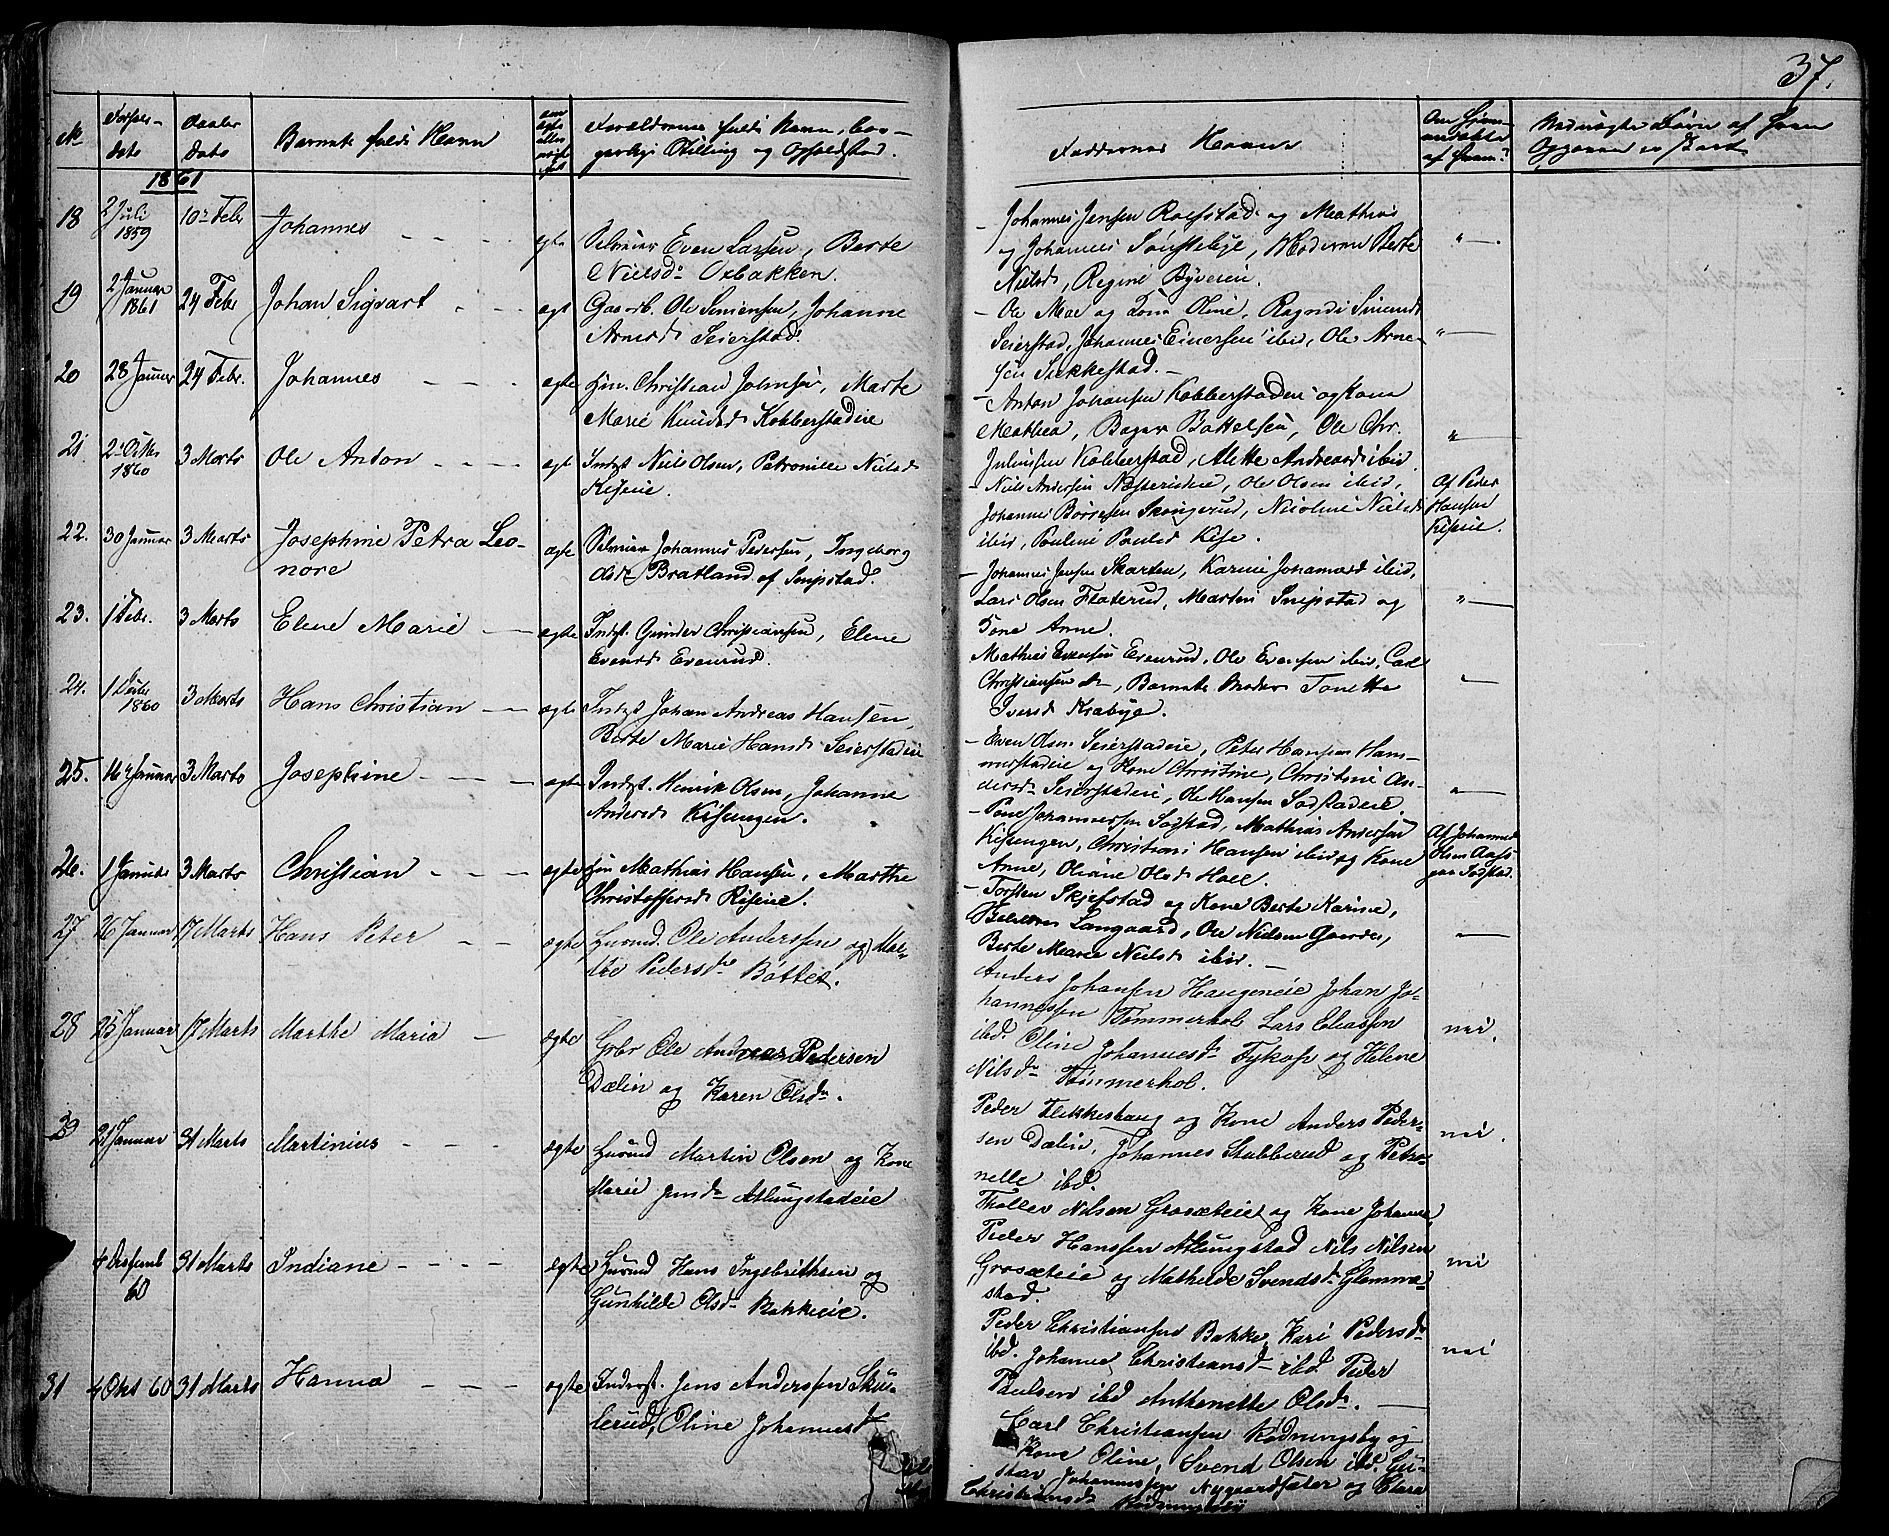 37.
No
Fødsels-
dato
Daabs
Dato
Barnets fulde Navn
om
ægte
eller
uægte
født
Forældrenes fulde Navn, bor-
gerlige Stilling og Opholdsted.
Faddernes Navne
Om hjem-
medøbte
af hvem?
1861
18
2 Juli
1859
10 Febr
Johannes
ægte
Selveier Even Larsen, Berte
Nielsd. Oxbakken.
Johannes Jensen Roofstad og Mathias
og Johannes Sønsteby, Moderen Berte
Nielsd, Regine Byveien.
19
2 Januar
1861
24 Febr
Johan Sigvart
ægt
Gaardb. Ole Simensen, Johanne
Arnesd Seierstad.
Ole Moe og Kone Oline, Ragndi Simensd
Seierstad, Johannes Einersen ibid, Ole Arne-
sen Sukkestad.
20
28 Januar
24 Febr.
Johannes
ægte
Christian Johnsen, Marte
Marie Knudsd Kobberstadeie
Anton Johansen Kobberstadeie og Kone
Mathea, Ole Chr.
Juliussen Kobberstad, Alette Andreasd ibid.
21
2 Oktr
1860
3 Marts
Ole Anton
ægt
Indst Niels Olsen, Petronille Nielsd
Kiseie.
Niels Andersen Næsteneie, Ole Olsen ibid,
Johannes Børresen Skougerud, Nicoline Nielsd
ibid, Pauline Paulsd Kise.
Af Peder
Hansen
Kiseeie.
22.
30 Januar
3 Marts
Josephine Petra Leo-
nore
ægte
Selveier Johannes Pedersen, Ingeborg
Olsd Bratland af Snipstad.
Johannes Jensen Skarten, Karine Johannesd ibid,
Lars Olsen Flaterud, Marten Snipstad og
Kone Anne.
23.
1 Febr.
3 Marts
Elene Marie
ægte
Indst. Gunder Christiansen, Elene
Evensd Evenrud.
Mathias Evensen Evenrud, Ole Evensen ibid, Carl
Christiansen do, Barnets Moder Tonette
Iversd Kraby.
24.
1 Decbr
1860
3 Marts
Hans Christian
ægte
Indst Johan Andreas Hansen,
Berte Marie Hansd Seierstadeie
Even Olsen Seierstadeie, Peter Hansen Ham-
merstadeie og Kone Christine, Christine An-
dersd Seierstadeie, Ole Hansen Sodstadeie.
25.
16 Januar
3 Marts
Josephine
ægte
Indst. Henrik Olsen, Johanne
Andersd Kisengen.
Poul Johannessen Sogstad, Mathias Andersen
Kisengen, Christian Hansen ibid og Kone
Anne, Oliane Olsd Hoel.
Af Johannes
Olsen Aas
paa Sodstad.
26.
1 Januar
3 Marts
Christian
ægte
Mathias Hansen, Marthe
Christoffersd Riseie.
Torsten Skjefstad og Kone Berte Karine,
Langaard, Ole Nielsen Gaarder,
Berte Marie Nielsd ibid.
27
26 Januar
17 Marts
Hans Peter
ægte
Husmd. Ole Anderssen og Mar-
the Pedersdr Bøttet.
Anders Johansen Haugeneie Johan Jo-
hannessen Tømmerhol Lars Eliassen
ibd. Oline Johannesdr Fykop og Helene
Nilsdr Tømmerhol.
28
25 Januar
17 Marts
Marthe Maria
ægte
Gbr Ole Andreas Pedersen
Dælin og Karen Olsdr.
nei.
Peder Flikkeshaug og Kone Anders Peder-
sen Dælin, Johannes Stubberud og Petro-
nelle ibd.
29
21 Januar
31 Marts
Martinius
ægte
Husmd Martin Olsen og Kone
Marie Jensdr Atlungstadeie
nei.
Tholler Nilsen Grosæteie og Kone Johanne,
Peder Hanssen Atlungstad Nils Nilsen
Grosæteie og Mathilde Svendsdr Glemme-
stad.
4 Desemb
60
31 Marts
Indiane
ægte
Husmd Hans Ingebrithsen og
Gunhilde Olsdr Bakkeeie.
nei
Peder Christiansen Bakke, Kari Pedersdr
ibd. Johanne Christiansdr ibd Peder
Paulsen ibd Anthonette Olsdr.
nei
31
4 Okt 60
31 Marts
Hanna
ægte
Inderst. Jens Anderssen Sku-
lerud, Oline Johannesd
Carl Christiansen Rødningsby og
Kone Oline, Svend Olsen ibd. Gu-
stav Johannessen Nygaardsæter og Clara
Christiansd Rødningsby